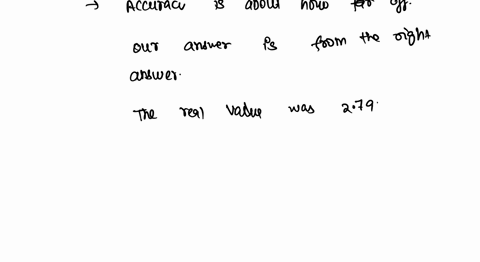 → Accuracy is about how far off
our answer is from the right
answer.
The real value was 2.79.